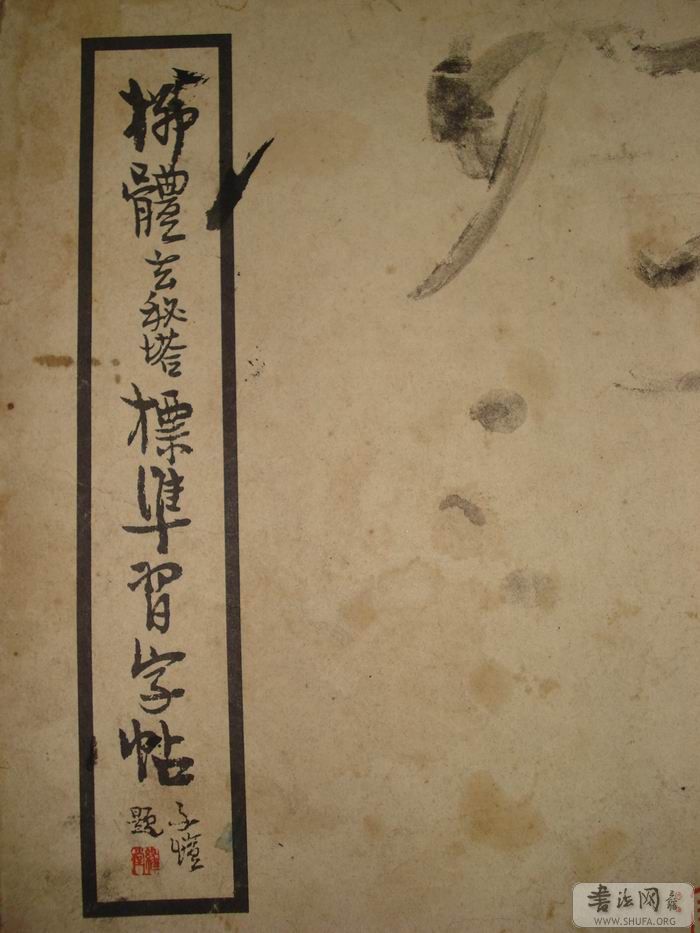 柳體玄秘塔標準習字帖
子愷
題
書法网
WWW.SHUFA.ORG